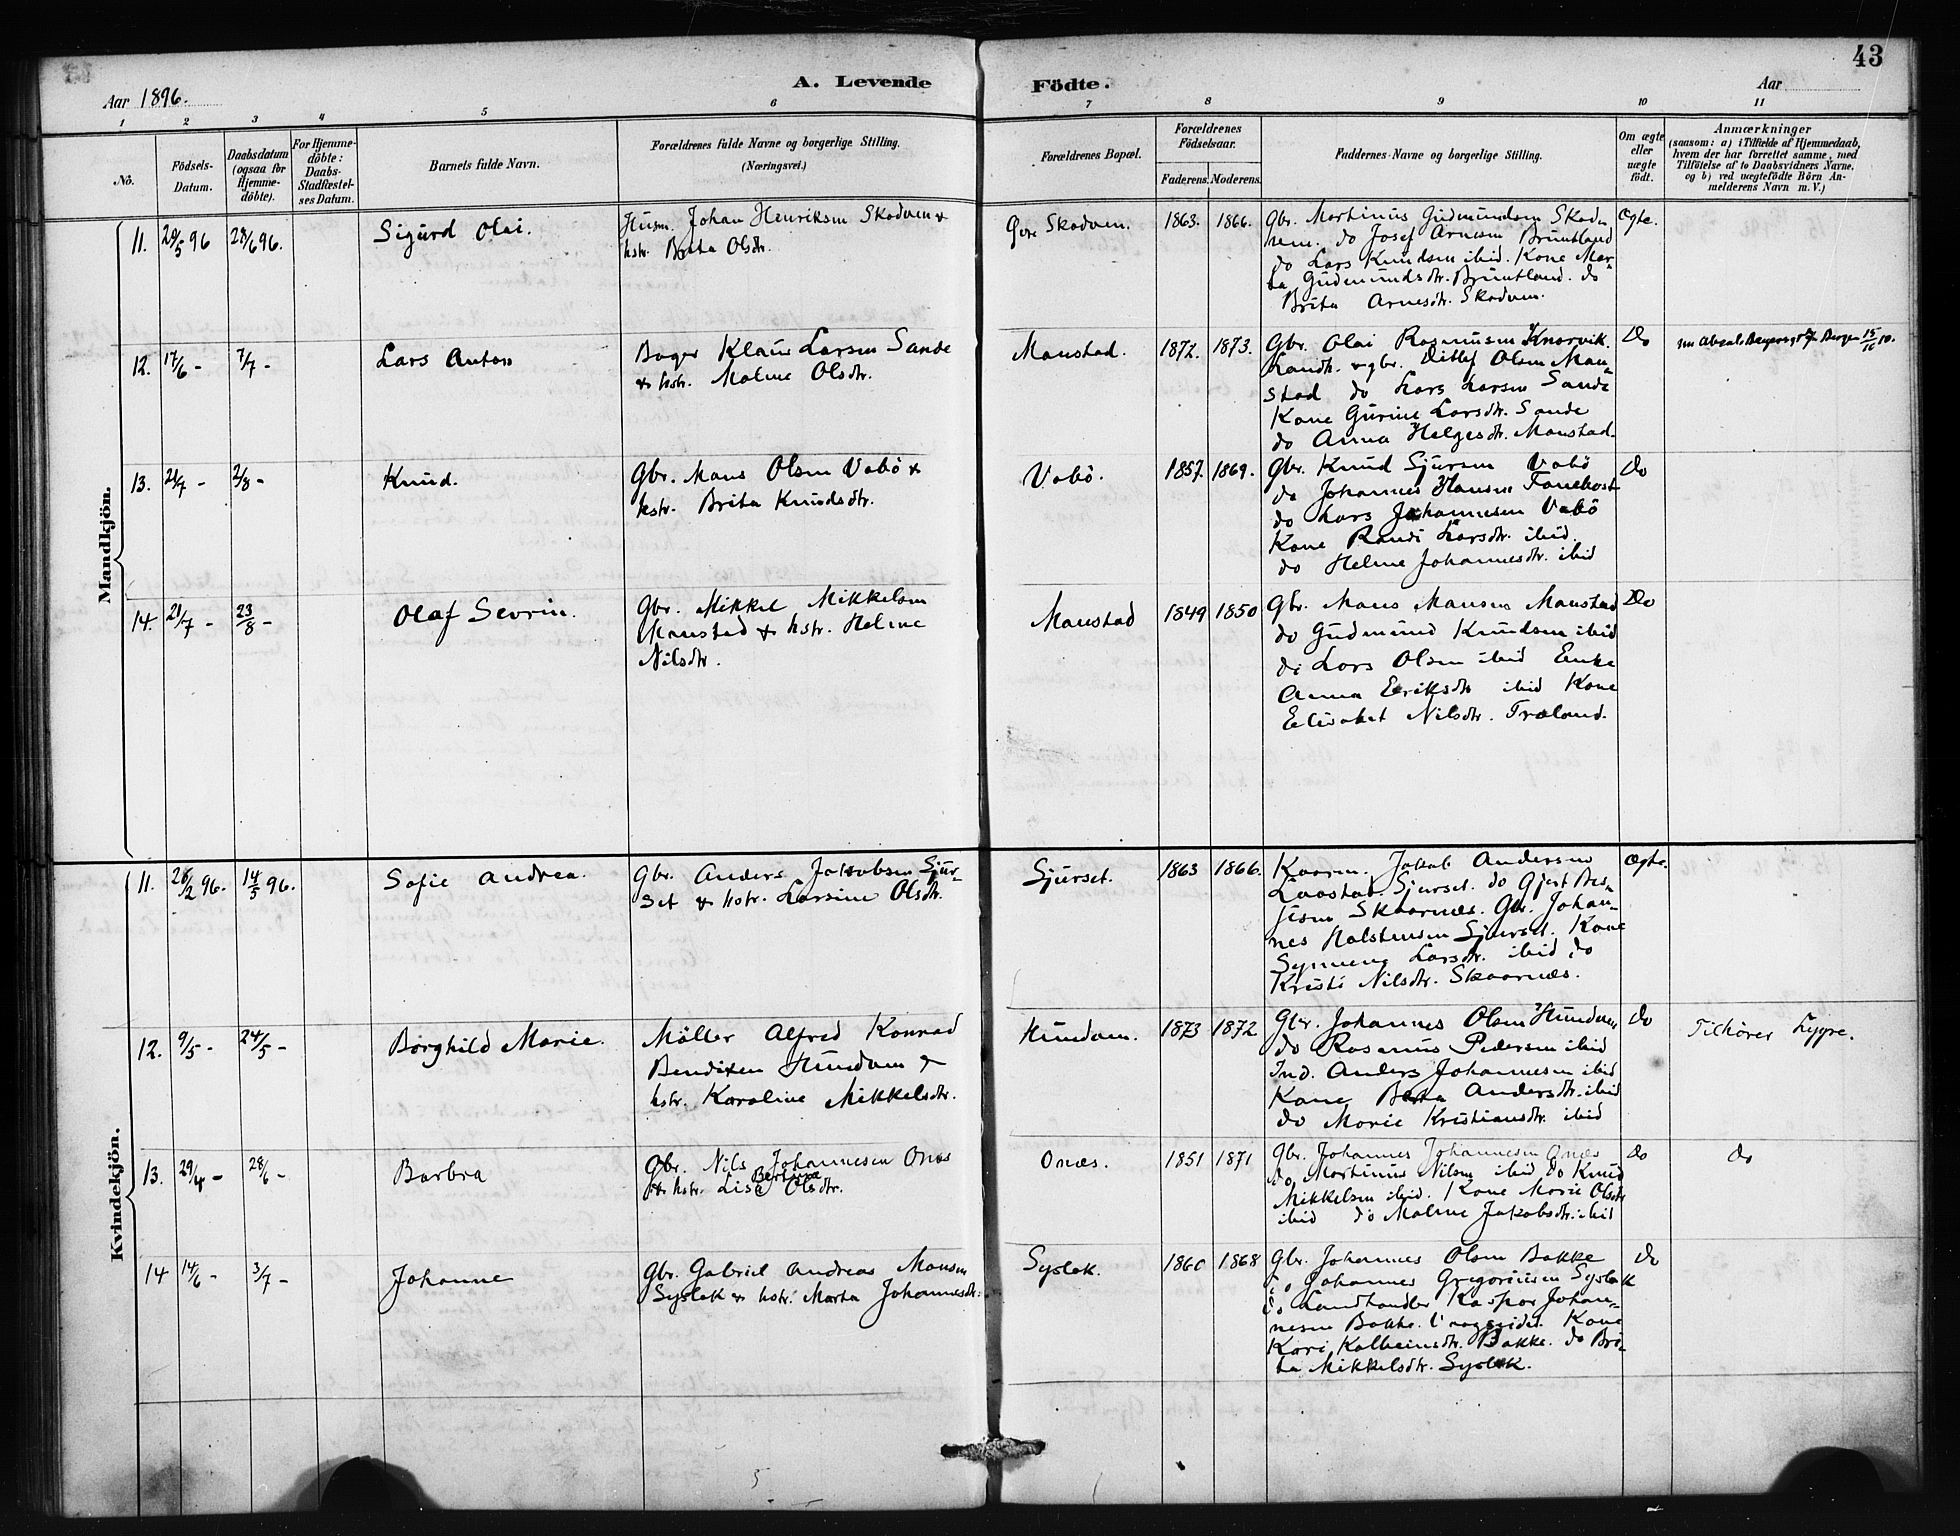 43
A. Levende Födte.
Aar 1896.
Aar
1 2 3 4 5 6 7 8 9 10 11
No.
Födsels-
Datum.
Daabsdatum
(ogsaa for
Hjemme-
döbte).
For Hjemme-
döbte:
Daabs-
Stadfæstel-
ses Datum.
Barnets fulde Navn.
Forældrenes fulde Navne og borgerlige Stilling.
(Næringsvei.)
Forældrenes Bopæl.
Forældrenes
Födselsaar.
Faderens. Moderens.
Faddernes Navne og borgerlige Stilling.
Om ægte
eller
uægte
födt.
Anmærkninger
(saasom: a) i Tilfælde af Hjemmedaab,
hvem der har forrettet samme, med
Tilföielse af to Daabsvidners Navne,
og b) ved uægtefödte Börn An-
melderens Navn m. V.)
Mandkjön.
11. 29/5 96 28/6 96.
Sigurd Olai.
Husm. Johan Henriksen Skodven &
hstr. Brita Olsdtr.
Skodven.
1863. 1866.
Gbr. Martinus Gudmundsen Skod-
ven. do Josef Arnesen Bruntland
do Lars Knudsen ibid. Kone Mar-
ta Gudmundsdtr. Bruntland. do
Brita Arnesdtr. Skodven.
Ægte.
12. 17/6 - 7/7 -
Lars Anton
Bager Klaus Larsen Sande
& hstr. Maline Olsdtr.
Manstad.
1872. 1873.
Gbr. Olai Rasmusen Knarvik.
Landh. & gbr. Ditlef Olsen Man-
stad do Lars Larsen Sande
Kone Gurine Larsdtr. Sande
do Anna Helgesdtr. Manstad.
Do
Bergen 15/11 10.
13. 21/7 - 2/8 -
Knud.
Gbr. Mans Olsen Vabö &
hstr. Brita Knudsdtr.
Vabö.
1857. 1869.
Gbr. Knud Sjursen Vabö
do Johannes Hansen Tanebost
do Lars Johannesen Vabö
Kone Randi Larsdtr. ibid.
do Helene Johannesdtr. ibid
Do
14. 21/7 - 23/8 -
Olaf Sevrin.
Gbr. Mikkel Mikkelsen
Manstad & hstr. Helene
Nilsdtr.
Manstad
1849 1850
Gbr. Mans Mansen Manstad
do Gudmund Knudsen ibid
do Lars Olsen ibid Enke
Anna Eriksdtr ibid Kone
Elisabet Nilsdtr. Træland.
Do
Kvindekjön.
11. 28/2 96. 14/5 96.
Sofie Andrea.
Gbr. Anders Jakobsen Sjur-
set & hstr. Larsine Olsdtr.
Sjurset.
1863 1866.
Jakob Andersen
Sjurset. do Gjert Bes-
jesen Skaarnæs. Gbr. Johan-
nes Halstensen Sjurset. Kone
Synneve Larsdtr. ibid do
Kristi Nilsdtr. Skaarnæs.
Ægte.
12. 9/5 - 24/5 -
Borghild Marie.
Möller Alfred Konrad
Bendixen Hundven &
hstr. Karoline Mikkelsdtr.
Hundven.
1873 1872
Gbr. Johannes Olsen Hundven
do Rasmus Pedersen ibid
Ind. Anders Johannesen ibid
Kone Berta Andersdtr. ibid
do Marie Kristiansdtr. ibid
Do
Tilhörer Lygre.
13. 29/4 - 28/6 -
Barbra
Gbr. Nils Johannesen Onæs
Bertine
& hstr. Lise Olsdtr.
Onæs.
1851 1871
Gbr. Johannes Johannesen Onæs
do Martinus Nilsen ibid do Knud
Mikkelsen ibid. Kone Marie Olsdtr
ibid do Maline Jakobsdtr. ibid
Do
do
14 14/6 - 3/7 -
Johanne
Gbr. Gabriel Andreas Monsen
Syslak & hstr. Marta Johannesdtr.
Syslak.
1860 1868
Gbr. Johannes Olsen Bakke
do Johannes Gregoriusen Syslak
do Landhandler Kaspar Johan-
nesen Bakke. Kone
Kari Kolbeinsdtr. Bakke. do Bri-
ta Mikkelsdtr. Syslak.
do